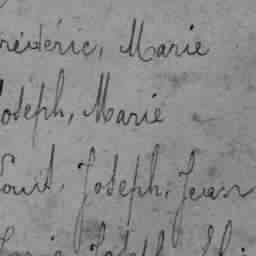 rédéric, Marie
Joseph, Marie
Louis, Joseph, Jean
Joseph